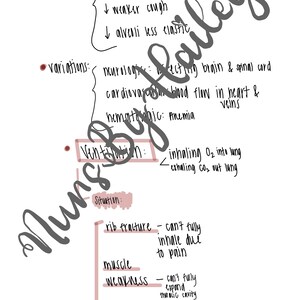 ↓ weaker cough
↓ alveoli less elastic
• variations:
neurologic: affecting brain & spinal cord
cardiovascular: blood flow in heart & veins
anemia
• Ventilation:
inhaling O₂ into lung
exhaling CO₂ out lung
Situation:
rib fracture – can't fully
inhale due
to pain
muscle
weakness – can't fully
expand
thoracic cavity
NursByHailey